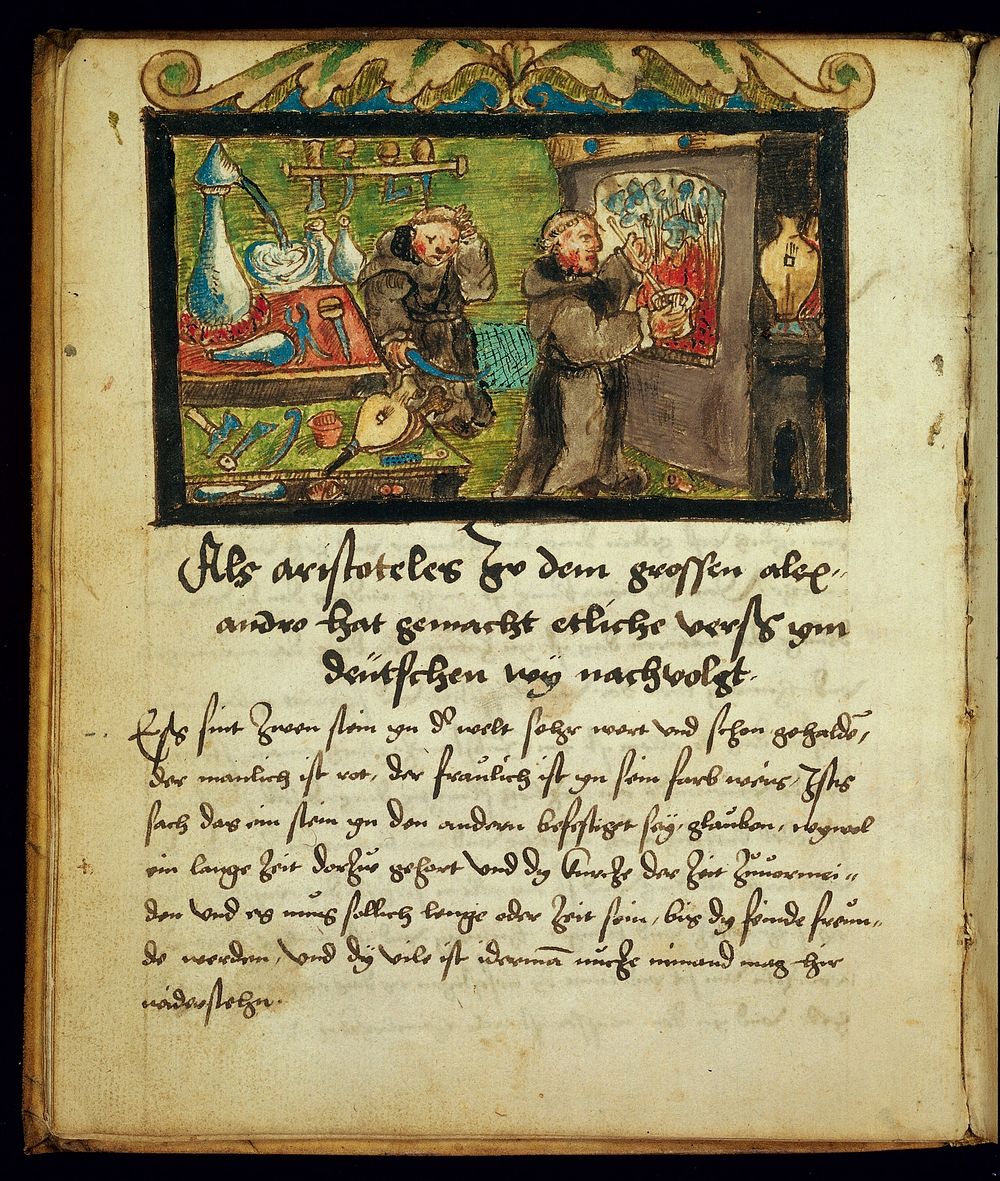 Als aristoteles zu dem grossen alex-
andro hat gemacht etliche verss ym
deütschen wy nachvolgt.
Ess sint zwen stein yn d' welt sehr wert vnd schon gehaldē,
der manlich ist rot, der fraulich ist yn sein farb weis, Ists
sach das ein stein yn den andern befestiget sey, glauben, wywol
ein lange zeit dorzw gehort vnd dy kurcze der zeit zuuormei-
den vnd es mus sollich lenge oder zeit sein, bis dy feinde freun-
de werden, vnd dy vile ist idermā nucze nimand mag hir
widerstehn.